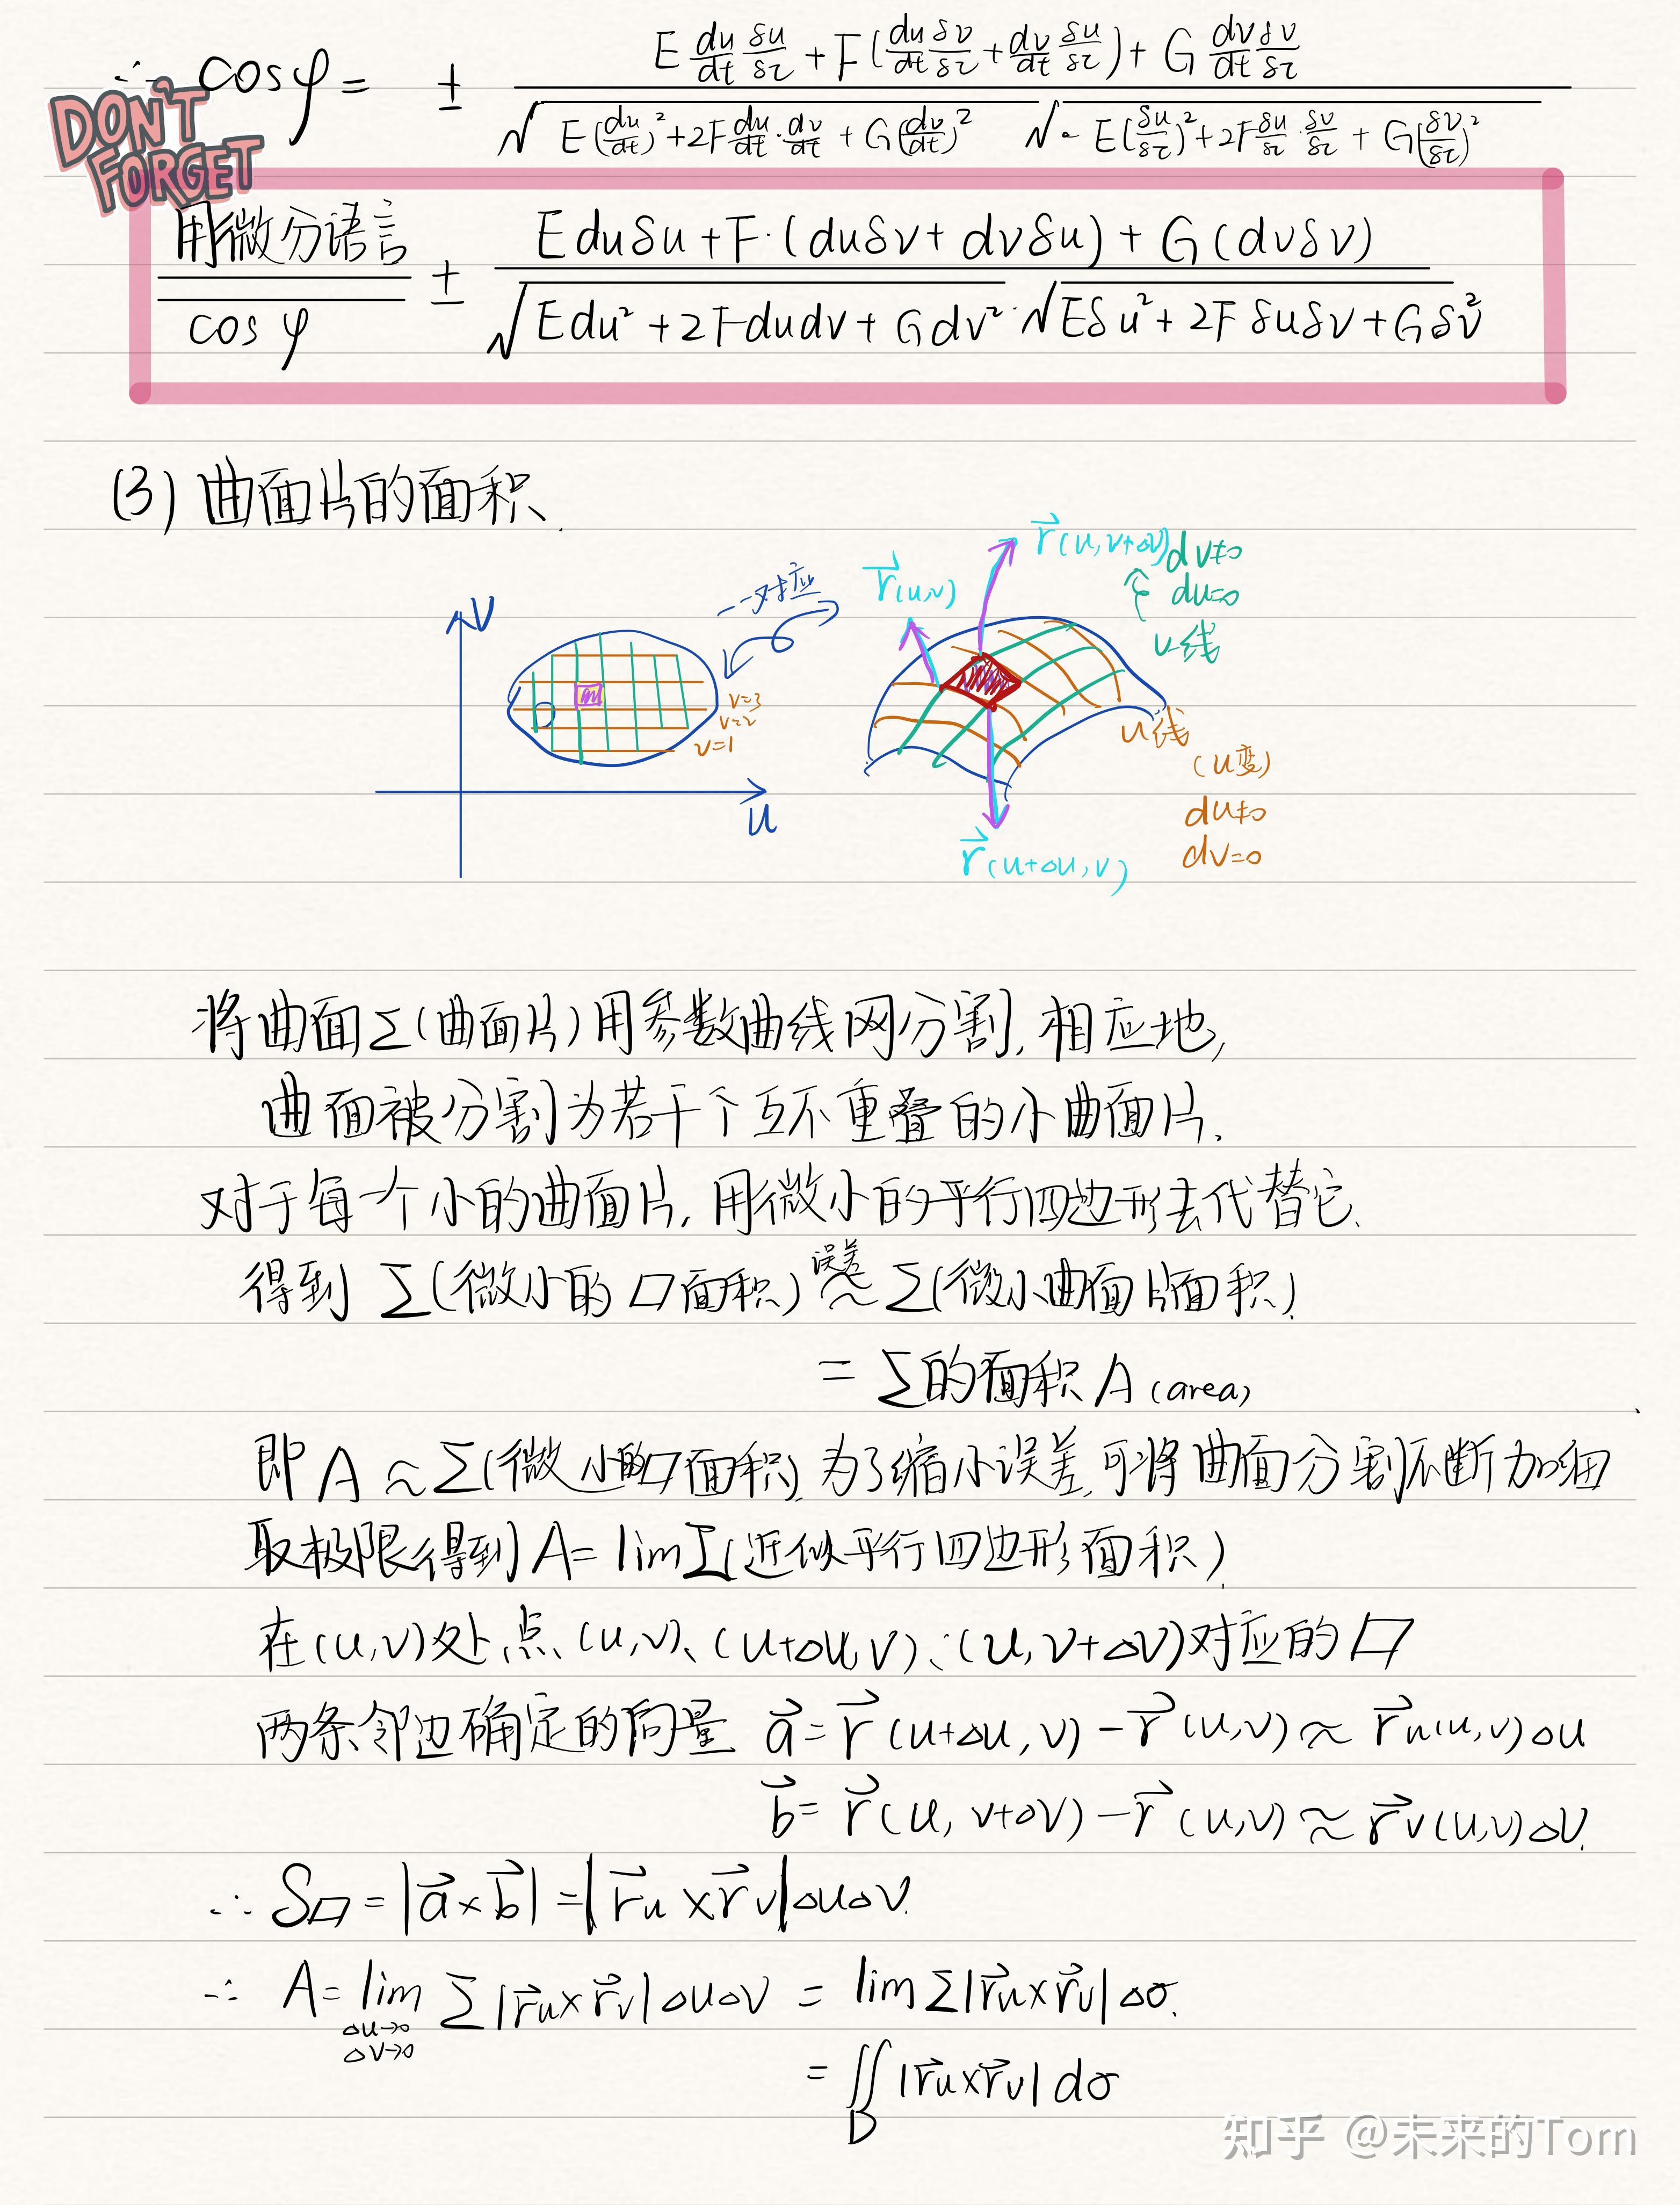 ∴ cosφ = ± (E du/dt δu/δτ + F(du/dt δv/δτ + dv/dt δu/δτ) + G dv/dt δv/δτ) / (√(E(du/dt)² + 2F du/dt · dv/dt + G(dv/dt)²) √(E(δu/δτ)² + 2F δu/δτ · δv/δτ + G(δv/δτ)²))
DON'T
FORGET
用微分语言
cosφ ± (Eduδu + F·(duδv + dvδu) + G(dvδv)) / (√(Edu² + 2Fdudv + Gdv²) · √(Eδu² + 2Fδuδv + Gδv²))
(3) 曲面片的面积、
v
一一对应
v=3
v=2
v=1
u
r⃗(u,v)
r⃗(u,v+△v)
dv≠0
du=0
v线
u线
(u变)
du≠0
dv=0
r⃗(u+△u,v)
将曲面Σ(曲面片)用参数曲线网分割,相应地,
曲面被分割为若干个互不重叠的小曲面片.
对于每一个小的曲面片,用微小的平行四边形去代替它.
得到 Σ(微小的▱面积) 误差≈ Σ(微小曲面片面积)
= Σ的面积A(area)
即 A≈Σ(微小的▱面积).为了缩小误差,可将曲面分割不断加细
取极限得到A=limΣ(近似平行四边形面积)
在(u,v)处,点、(u,v)、(u+△u,v)、(u,v+△v)对应的▱
两条邻边确定的向量 a⃗=r⃗(u+△u,v)-r⃗(u,v)≈r⃗u(u,v)△u
b⃗=r⃗(u,v+△v)-r⃗(u,v)≈r⃗v(u,v)△v.
∴ S▱=|a⃗×b⃗|=|r⃗u×r⃗v|△u△v.
∴ A=lim △u→0 △v→0 Σ|r⃗u×r⃗v|△u△v = limΣ|r⃗u×r⃗v|△σ.
= ∬D |r⃗u×r⃗v| dσ
知乎 @未来的Tom